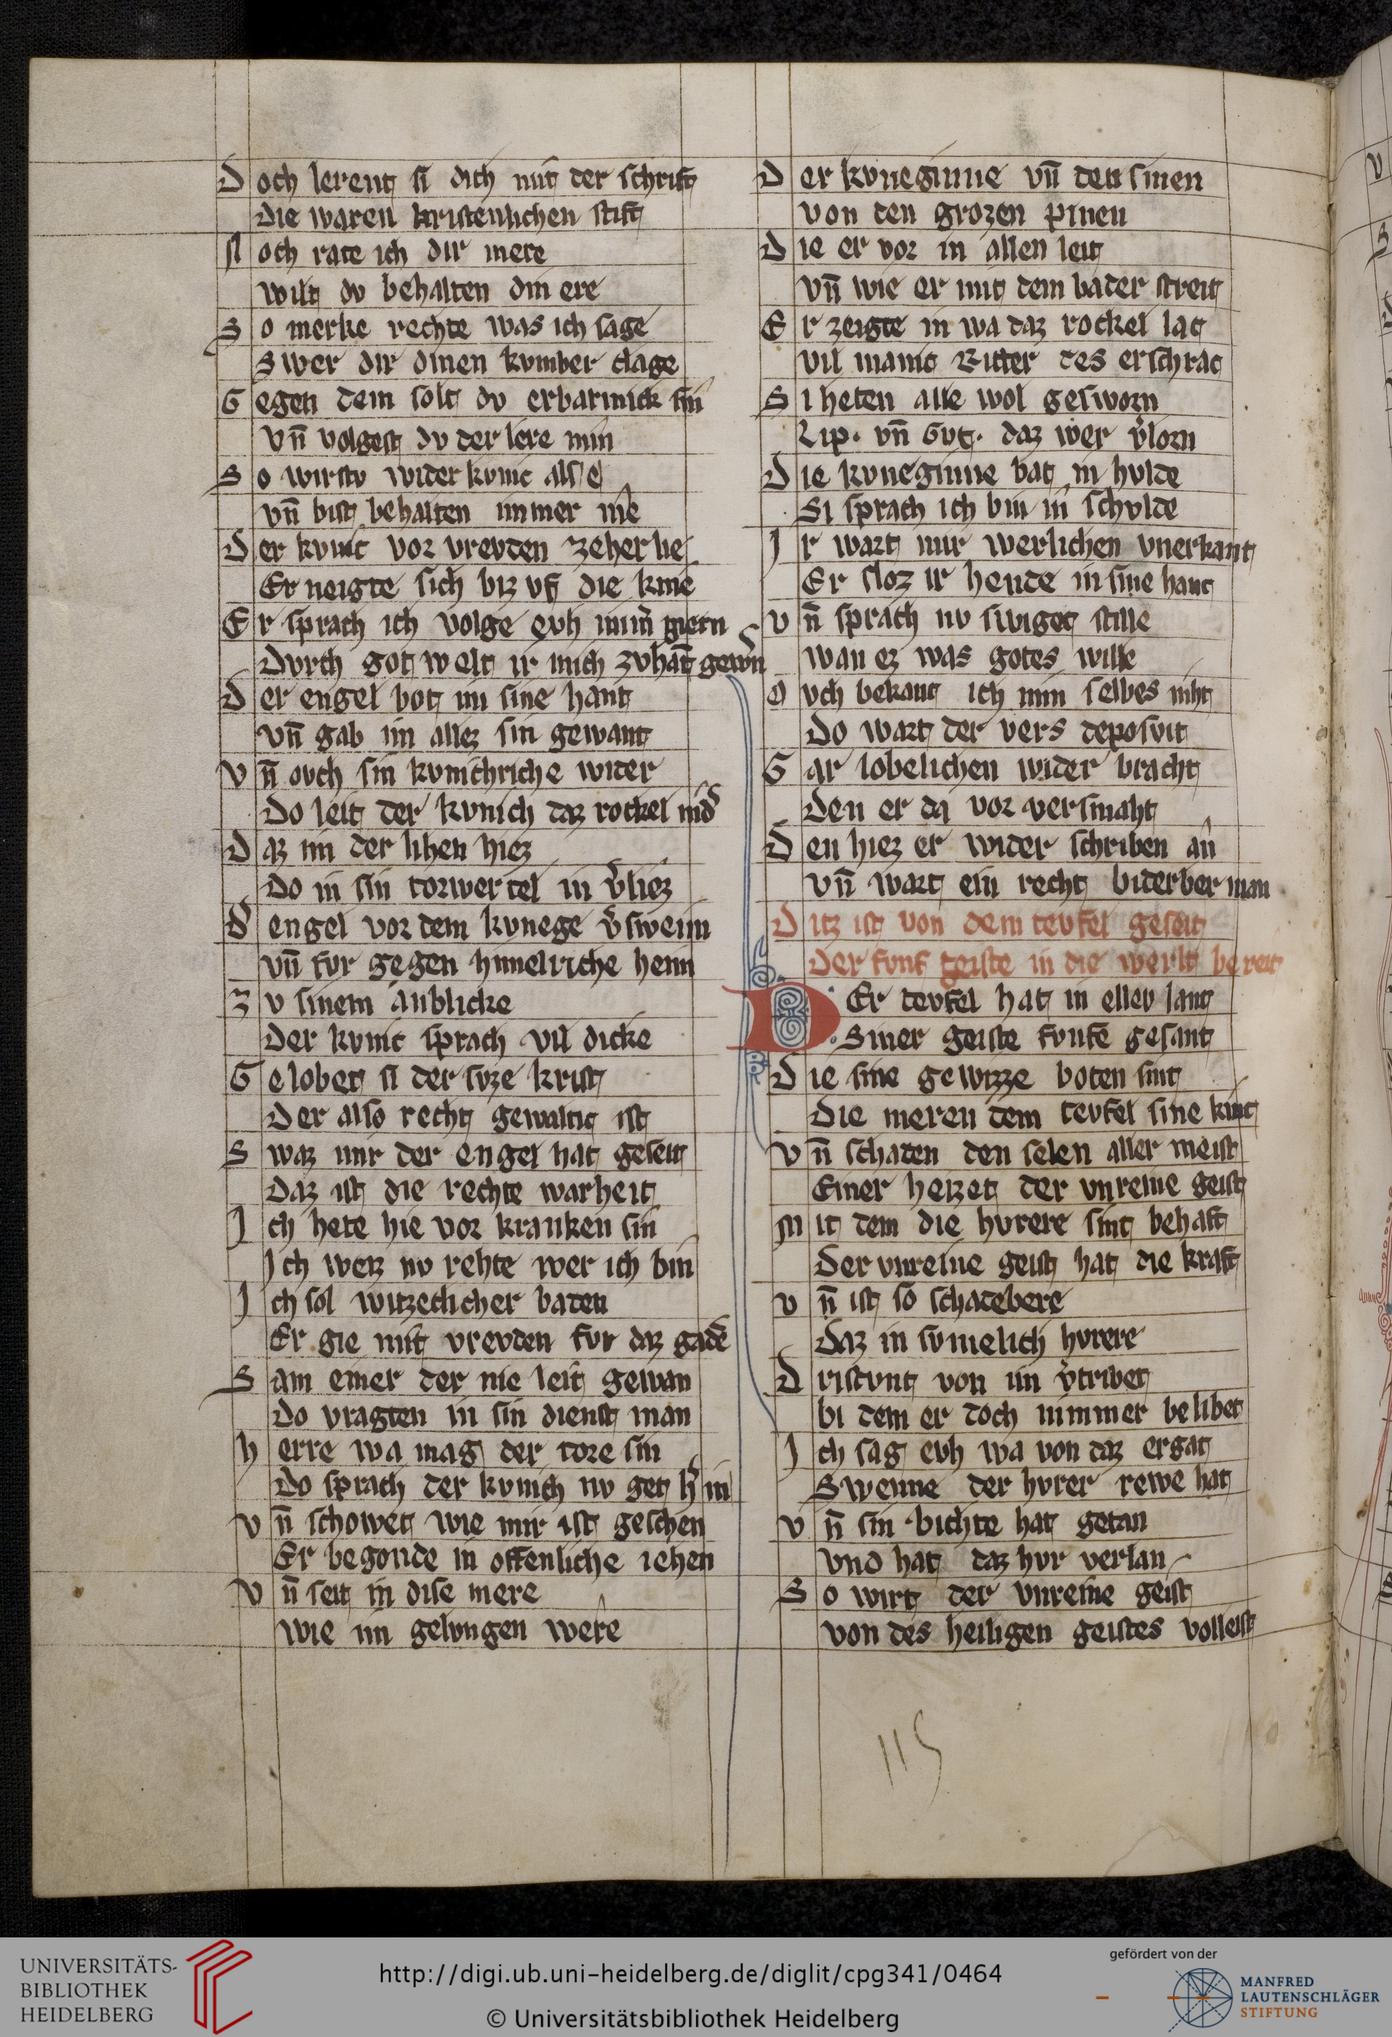 Doch lerent si dich mit der schrift
die waren kristenlichen stift
Noch rate ich dir mere
wilt dv behalten din ere
So merke rechte was ich sage
Swer dir dinen kvmber clage
Gegen dem solt dv erbarmick sin
vn̄ volgest dv der lere min
So wirstv wider kvnic als e
vn̄ bist behalten immer me
Der kvnic vor vrevden zeher lie
Er neigte sich biz vf die knie
Er sprach ich volge evh mim̄ gern
Dvrch got welt ir mich zvhāt gewˀn
Der engel bot im sine hant
vn̄ gab im allez sin gewant
vn̄ ovch sin kvnichriche wider
Do leit der kvnich daz rockel nidˀ
Daz im der lihen hiez
Do in sin torwertel in vˀliez
Dˀ engel vor dem kvnege vˀswein
vn̄ fvr gegen himelriche hein
Zv sinem anblicke
Der kvnic sprach vil dicke
Gelobet si der svze krist
Der also recht gewaltic ist
Swaz mir der engel hat geseit
Daz ist die rechte warheit
Ich hete hie vor kranken sin
Ich weiz nv rehte wer ich bin
Ich sol witzeclicher baden
Er gie mit vrevden fvr daz gadē
Sam einer der nie leit gewan
Do vragten in sin dienst man
herre wa mag der tore sin
Do sprach der kvnich nv get hˀ in
vn̄ schowet wie mir ist geschen
Er begonde in offenliche iehen
vn̄ seit in dise mere
wie im gelvngen were
Der kvneginne vn̄ den sinen
von den grozen pinen
Die er vor in allen leit
vn̄ wie er mit dem bader streit
Er zeigte in wa daz rockel lac
vil manic Ritter des erschrac
Si heten alle wol gesworn
Lip. vn̄ Gvt. daz wer vˀlorn
Die kvneginne bat in hvlde
Si sprach ich bin in schvlde
Ir wart mir werlichen vnerkant
Er sloz ir hende in sine hant
vn̄ sprach nv swiget stille
wan ez was gotes wille
ovch bekant ich min selbes niht
Do wart der vers deposvit
Gar lobelichen wider bracht
den er da vor versmaht
Den hiez er wider schriben an
vn̄ wart ein recht biderber man
Ditz ist von dem tevfel geseit
Der fvnf geiste in die werlt bereit
DEr tevfel hat in ellev lant
Siner geiste fvnfe gesant
Die sine gewizze boten sint
Die meren dem tevfel sine kint
vn̄ schaden den selen aller meist
Einer heizet der vnreine geist
Mit dem die hvrere sint behaft
Der vnreine geist hat die kraft
vn̄ ist so schadebere
Daz in svmelich hvrere
Dristvnt von im vˀtribet
bi dem er doch nimmer belibet
Ich sag evh wa von daz ergat
Swenne der hvrer rewe hat
vn̄ sin bichte hat getan
vnd hat daz hvr verlan
So wirt der vnreine geist
von des heiligen geistes volleist
115
UNIVERSITÄTS-
BIBLIOTHEK
HEIDELBERG
http://digi.ub.uni-heidelberg.de/diglit/cpg341/0464
© Universitätsbibliothek Heidelberg
gefördert von der
MANFRED
LAUTENSCHLÄGER
STIFTUNG